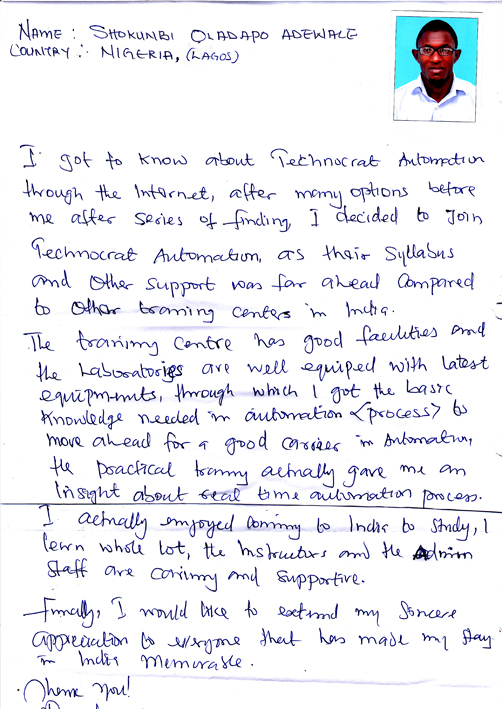 NAME : SHOKUNBI OLADAPO ADEWALE
COUNTRY : NIGERIA, (LAGOS)
I got to know about Technocrat Automation
through the Internet, after many options before
me after series of finding, I decided to Join
Technocrat Automation, as their Syllabus
and Other Support was far ahead Compared
to Other training centers in India.
The training Centre has good facilities and
the Laboratories are well equiped with latest
equipments, through which I got the basic
Knowledge needed in automation <process> to
move ahead for a good career in Automation,
the practical training actually gave me an
Insight about real time automation process.
I actually enjoyed coming to India to study, I
learn whole lot, the Instructors and the Admin
Staff are caring and Supportive.
Finally, I would like to extend my Sincere
appreciation to everyone that has made my Stay
in India Memorable.
Thank You!